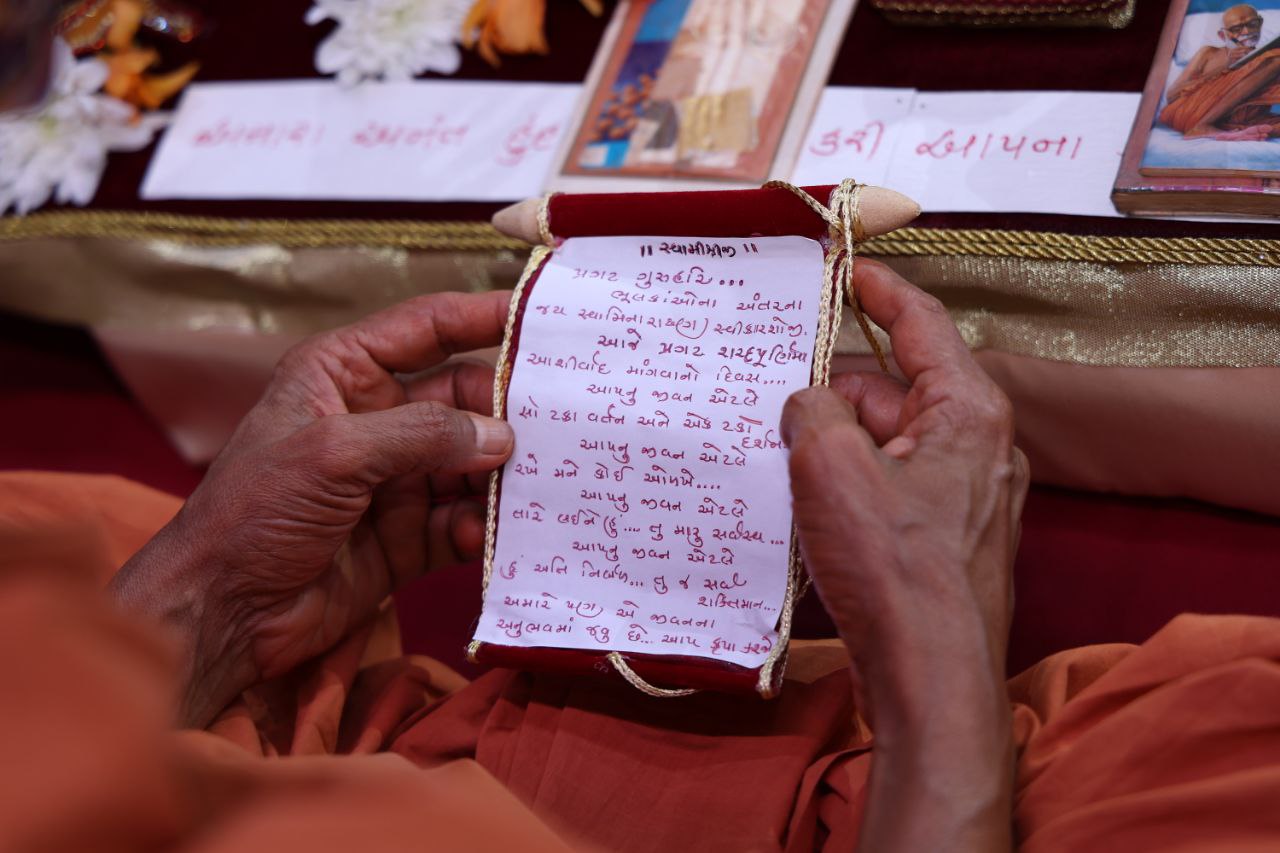 અમારા અનંત
કરી આપના
॥ સ્વામીશ્રીજી ॥
પ્રગટ ગુરુહરિ...
ભૂલકાંઓના અંતરના
જય સ્વામિનારાયણ સ્વીકારશોજી.
આજે પ્રગટ શરદપૂર્ણિમા
આશીર્વાદ માંગવાનો દિવસ....
આપનુ જીવન એટલે
સો ટકા વર્તન અને એક ટકો
દર્શન.
આપનુ જીવન એટલે
રખે મને કોઈ ઓળખે....
આપનુ જીવન એટલે
તારે લઈને હું.... તુ મારુ સર્વસ્વ...
આપનુ જીવન એટલે
હું અતિ નિર્બળ... તુ જ સર્વ
શક્તિમાન...
અમારે પણ એ જીવનના
અનુભવમાં જવુ છે... આપ કૃપા કરજો